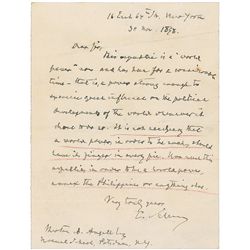 16 East 64 St., New York
30 Nov., 1898.
Dear Sir,
This republic is a "world
power" now and has been for a considerable
time - that is, a power strong enough to
exercise great influence on the political
developments of the world whenever it
chose to do so. It is not necessary that
a world power, in order to be such, should
have its finger in every pie. Nor need this
republic in order to be a world power,
annex the Philippines or anything else.
Very truly yours
Normal School, Paterson, N.J.